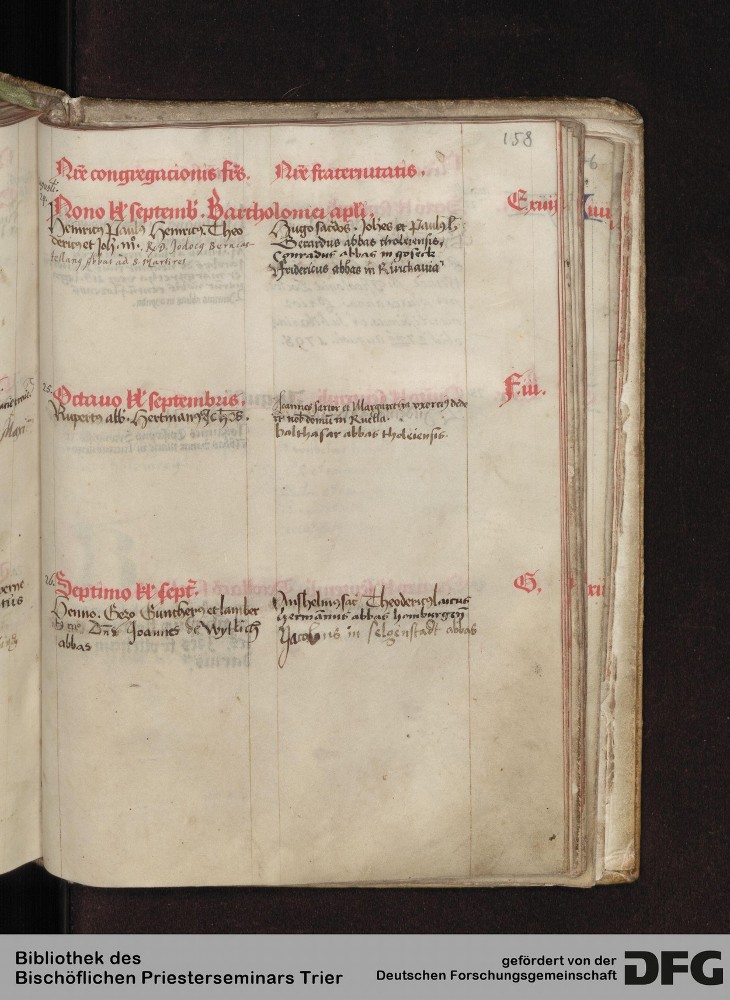 158
Nr̄e congregacionis frēs. Nr̄e fraternitatis.
24. Nono kl' septemb'. Bartholomei apli. E xiiij
Henricꝰ Paulꝰ Henricꝰ. Theo
dericꝰ et Joh.
R. D. Jodocꝰ
abbas ad S. Martinū
Hugo sacdos. Johēs et Paulꝰ
Gerardus abbas tholeiensis
Conradus abbas in goseck
Fridericus abbas in
25. Octauo kl' septembris. F. iii.
Rupertꝰ abb. Hertmanꝰ
Joannes sartor et Margaretha vxor eiꝰ dede
rt nob domum in Ruella.
balthasar abbas tholeiensis.
26. Septimo kl' sept. G.
Henno. Gezo Guntherꝰ et lamber
Dns Joannes de Wytlich
abbas
Anshelmꝰ sac. Theodericꝰ laicus
Hermannus abbas homburgen
Jacobus in selgenstadt abbas
Bibliothek des
Bischöflichen Priesterseminars Trier
gefördert von der
Deutschen Forschungsgemeinschaft
DFG